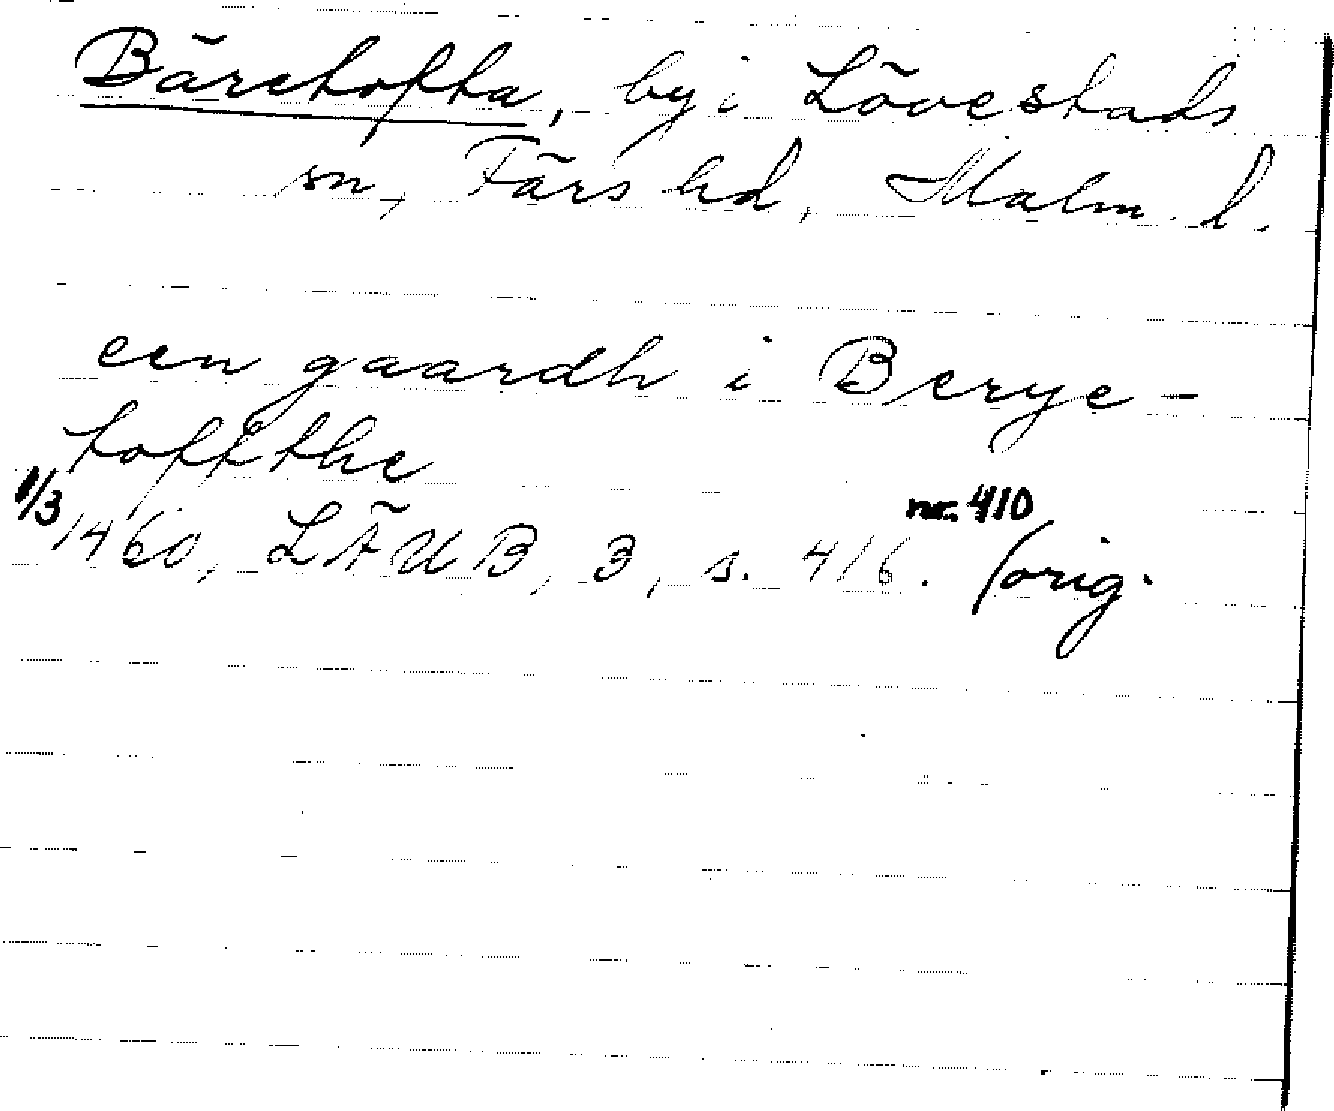 Bäretofta, by i Lövestads
sn, Färs hd, Malm. l.
een gaardh i Berye-
toffthe
1/3 1460, LÄUB, 3, s. 416. nr. 410 (orig.